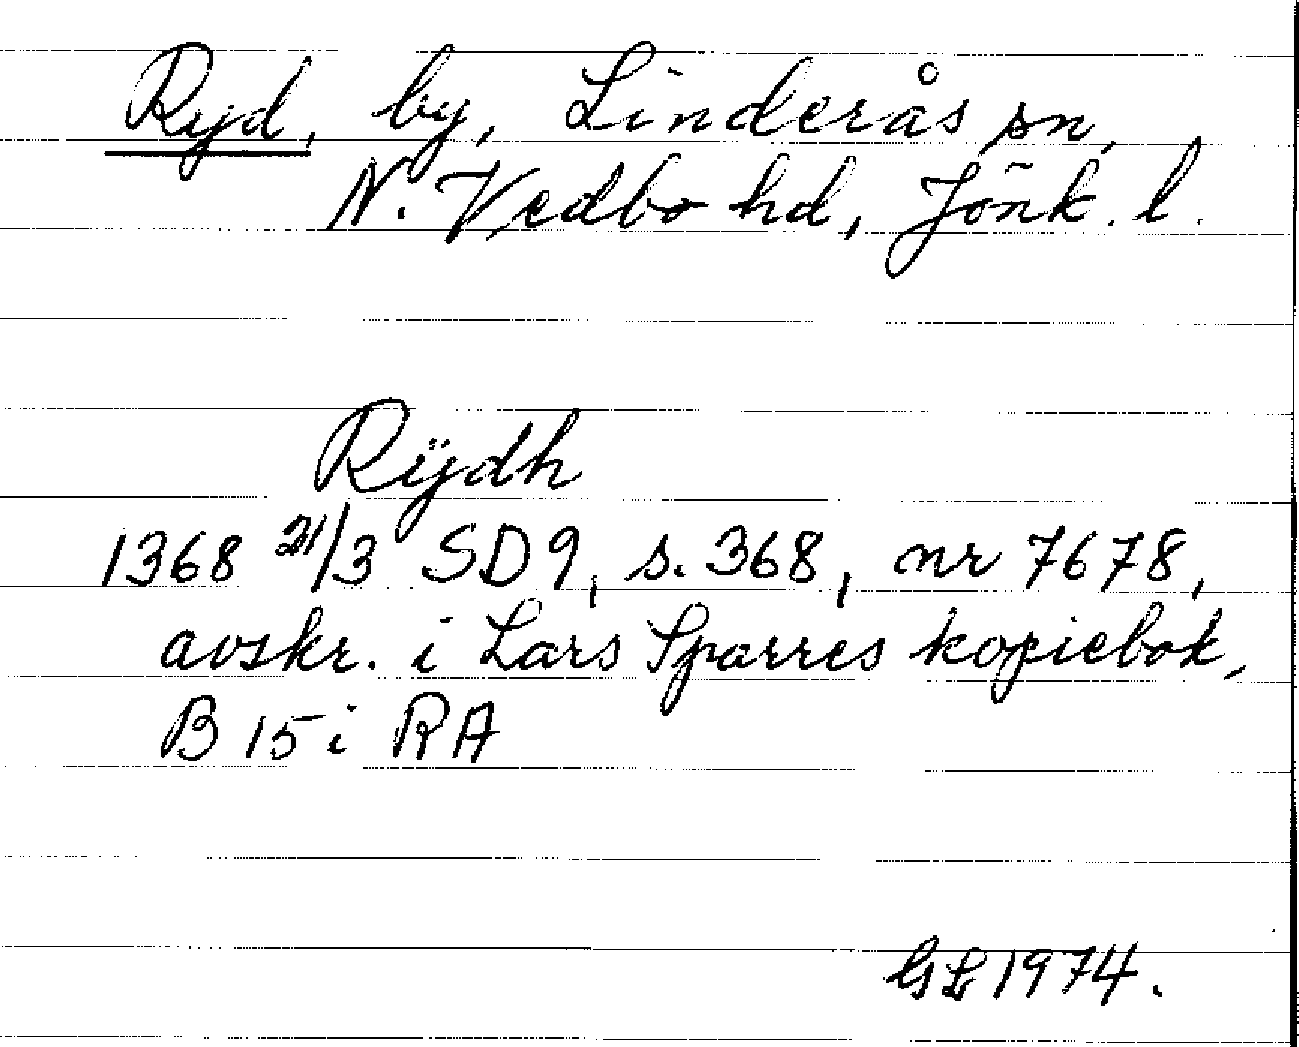 Ryd, by, Linderås sn,
N. Vedbo hd, Jönk. l.
Rÿdh
1368 21/3 SD9, s. 368, nr 7678,
avskr. i Lars Sparres kopiebok,
B 15 i RA
GL 1974.